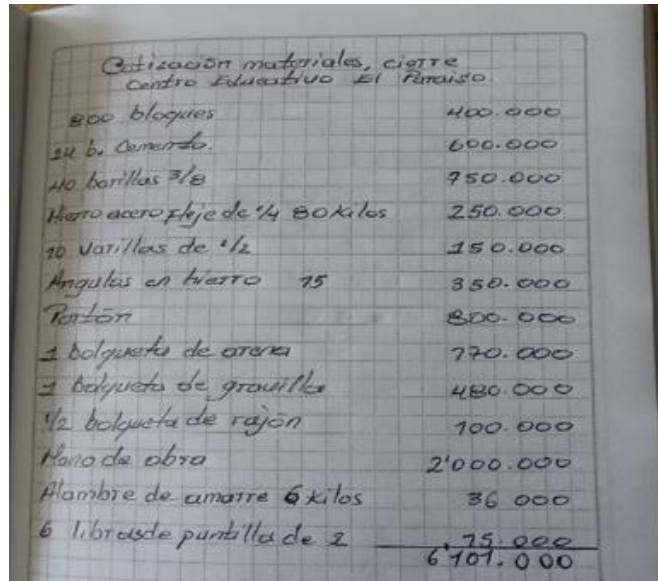 Cotización materiales, cierre
Centro Educativo El Paraiso.
800 bloques 400.000
24 b. Cemento. 600.000
40 barillas 3/8 750.000
Hierro acero fleje de 1/4 80 Kilos 250.000
10 Varillas de 1/2 150.000
Angulas en hierro 15 350.000
Portón 800.000
1 bolqueta de arena 170.000
1 bolqueta de gravilla 480.000
1/2 bolqueta de rajón 100.000
Mano de obra 2'000.000
Alambre de amarre 6 Kilos 36 000
6 libras de puntilla de 2 15.000
6'101.000